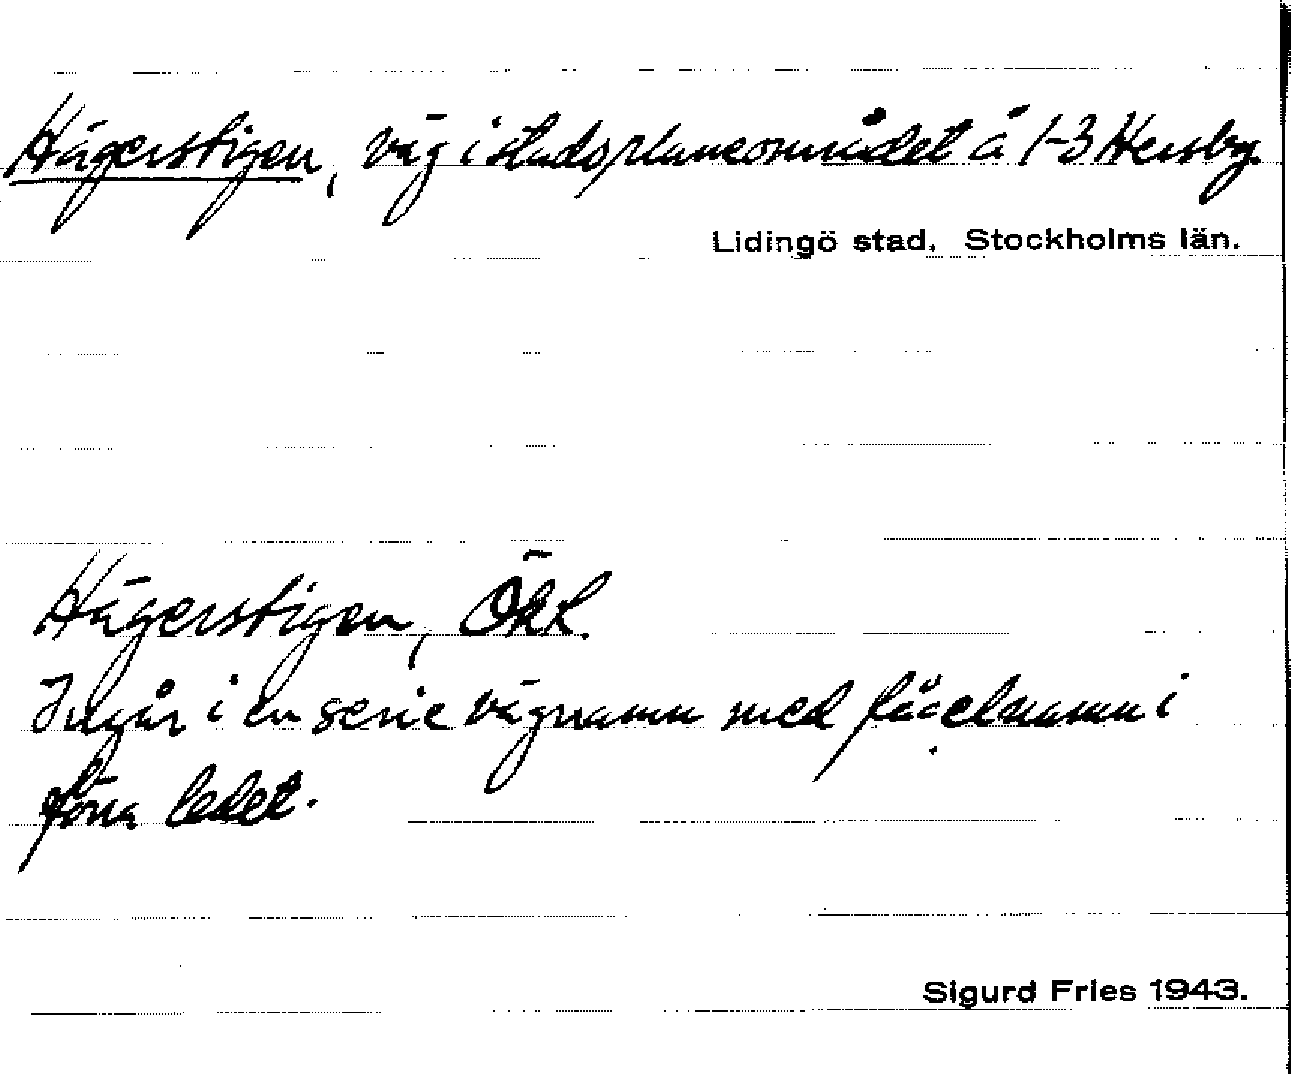 Hägerstigen, väg i stadsplaneområdet å 1-3 Hersby.
Lidingö stad, Stockholms län.
Hägerstigen, Ökk.
Ingår i en serie vägnamn med fågelnamn i
förra ledet.
Sigurd Fries 1943.